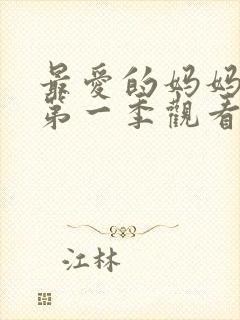 最愛的妈妈
第一季觀看
江林